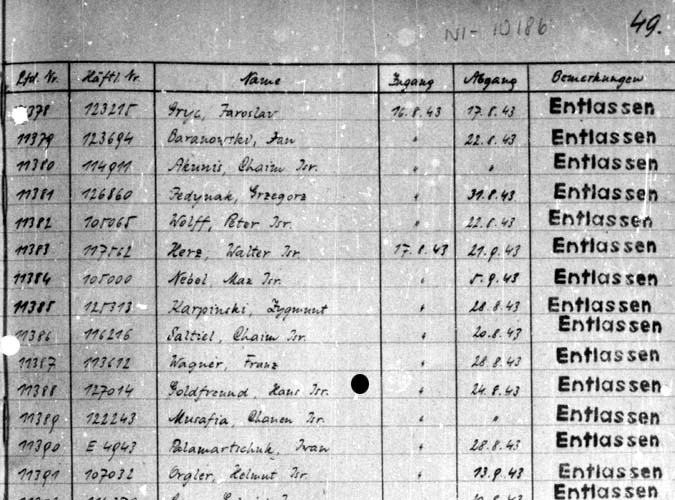 NI-10186 49.
Lfd. Nr. Häftl. Nr. Name Zugang Abgang Bemerkungen
11378 123215 Gryc, Jaroslav 16.8.43 17.8.43 Entlassen
11379 123694 Baranowski, Jan " 22.8.43 Entlassen
11380 114911 Akunis, Chaim Isr. " " Entlassen
11381 126860 Fedynak, Grzegorz " 31.8.43 Entlassen
11382 105065 Wolff, Peter Isr. " 22.8.43 Entlassen
11383 117562 Herz, Walter Isr. 17.8.43 21.9.43 Entlassen
11384 105000 Nebol, Max Isr. " 5.9.43 Entlassen
11385 125313 Karpinski, Zygmunt " 28.8.43 Entlassen
11386 116216 Saltiel, Chaim Isr. " 20.8.43 Entlassen
11387 113612 Wagner, Franz " 28.8.43 Entlassen
11388 127014 Goldfreund, Hans Isr. " 24.8.43 Entlassen
11389 122243 Musafia, Chanen Isr. " " Entlassen
11390 E 4943 Palamartschuk, Iwan " 28.8.43 Entlassen
11391 107032 Orgler, Helmut Isr. " 13.9.43 Entlassen
Entlassen